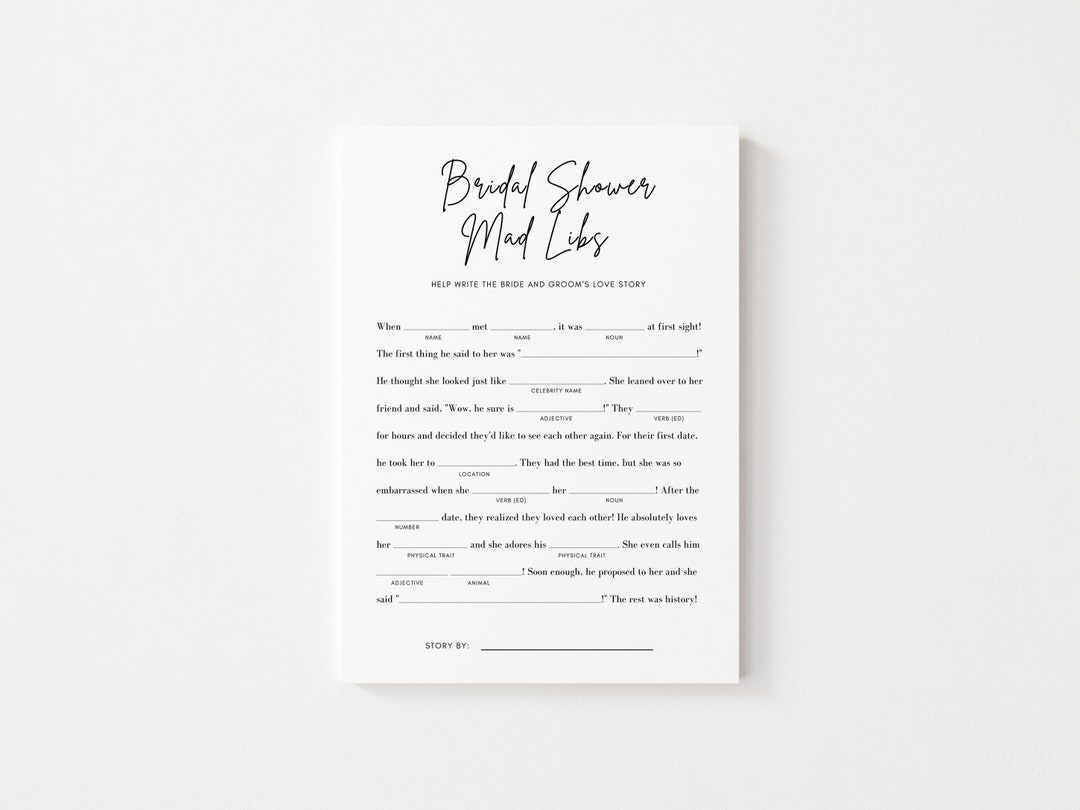 Bridal Shower
Mad Libs
HELP WRITE THE BRIDE AND GROOM'S LOVE STORY
When ____________ met ____________, it was ____________ at first sight!
NAME NAME NOUN
The first thing he said to her was "______________________________!"
He thought she looked just like ____________________. She leaned over to her
CELEBRITY NAME
friend and said, "Wow, he sure is ________________!" They ____________
ADJECTIVE VERB (ED)
for hours and decided they'd like to see each other again. For their first date,
he took her to ______________. They had the best time, but she was so
LOCATION
embarrassed when she ______________ her ________________! After the
VERB (ED) NOUN
____________ date, they realized they loved each other! He absolutely loves
NUMBER
her ______________ and she adores his ____________. She even calls him
PHYSICAL TRAIT PHYSICAL TRAIT
____________ ____________! Soon enough, he proposed to her and she
ADJECTIVE ANIMAL
said "___________________________________!" The rest was history!
STORY BY: ______________________________